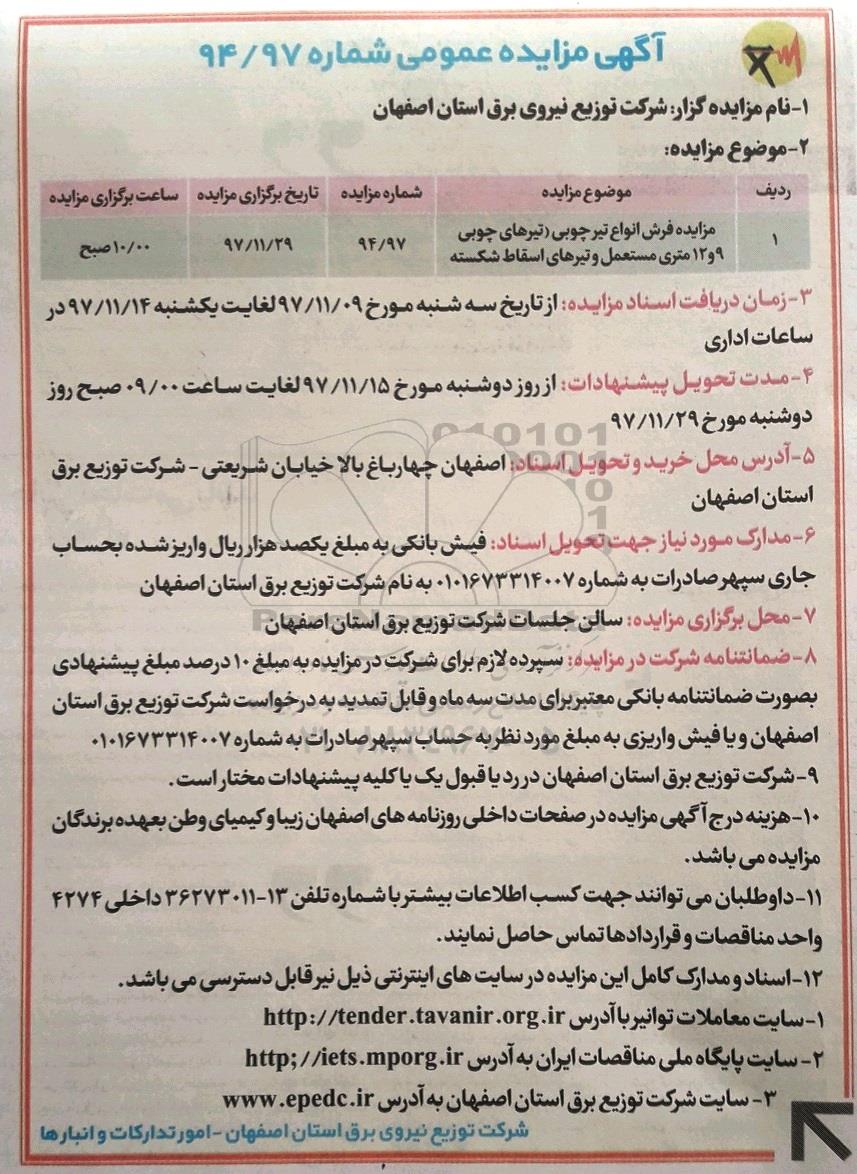 آگهی مزایده عمومی شماره ۹۴/۹۷
۱-نام مزایده گزار: شرکت توزیع نیروی برق استان اصفهان
۲-موضوع مزایده:
ردیف موضوع مزایده شماره مزایده تاریخ برگزاری مزایده ساعت برگزاری مزایده
۱ مزایده فرش انواع تیر چوبی (تیرهای چوبی ۹۴/۹۷ ۹۷/۱۱/۲۹ ۱۰/۰۰صبح
۹و۱۲ متری مستعمل و تیرهای اسقاط شکسته
۳-زمان دریافت اسناد مزایده: از تاریخ سه شنبه مورخ ۹۷/۱۱/۰۹ لغایت یکشنبه ۹۷/۱۱/۱۴ در
ساعات اداری
۴-مدت تحویل پیشنهادات: از روز دوشنبه مورخ ۹۷/۱۱/۱۵ لغایت ساعت ۰۹/۰۰ صبح روز
دوشنبه مورخ ۹۷/۱۱/۲۹
۵-آدرس محل خرید و تحویل اسناد: اصفهان چهارباغ بالا خیابان شریعتی - شرکت توزیع برق
استان اصفهان
۶-مدارک مورد نیاز جهت تحویل اسناد: فیش بانکی به مبلغ یکصد هزار ریال واریز شده بحساب
جاری سپهر صادرات به شماره ۰۱۰۱۶۷۳۳۱۴۰۰۷ به نام شرکت توزیع برق استان اصفهان
۷-محل برگزاری مزایده: سالن جلسات شرکت توزیع برق استان اصفهان
۸-ضمانتنامه شرکت در مزایده: سپرده لازم برای شرکت در مزایده به مبلغ ۱۰ درصد مبلغ پیشنهادی
بصورت ضمانتنامه بانکی معتبر برای مدت سه ماه و قابل تمدید به درخواست شرکت توزیع برق استان
اصفهان و یا فیش واریزی به مبلغ مورد نظر به حساب سپهر صادرات به شماره ۰۱۰۱۶۷۳۳۱۴۰۰۷
۹-شرکت توزیع برق استان اصفهان در رد یا قبول یک یا کلیه پیشنهادات مختار است.
۱۰-هزینه درج آگهی مزایده در صفحات داخلی روزنامه های اصفهان زیبا و کیمیای وطن بعهده برندگان
مزایده می باشد.
۱۱-داوطلبان می توانند جهت کسب اطلاعات بیشتر با شماره تلفن ۱۳-۳۶۲۷۳۰۱۱ داخلی ۴۲۷۴
واحد مناقصات و قراردادها تماس حاصل نمایند.
۱۲-اسناد و مدارک کامل این مزایده در سایت های اینترنتی ذیل نیر قابل دسترسی می باشد.
۱-سایت معاملات توانیر با آدرس http://tender.tavanir.org.ir
۲- سایت پایگاه ملی مناقصات ایران به آدرس http;//iets.mporg.ir
۳- سایت شرکت توزیع برق استان اصفهان به آدرس www.epedc.ir
شرکت توزیع نیروی برق استان اصفهان -امور تدارکات و انبارها